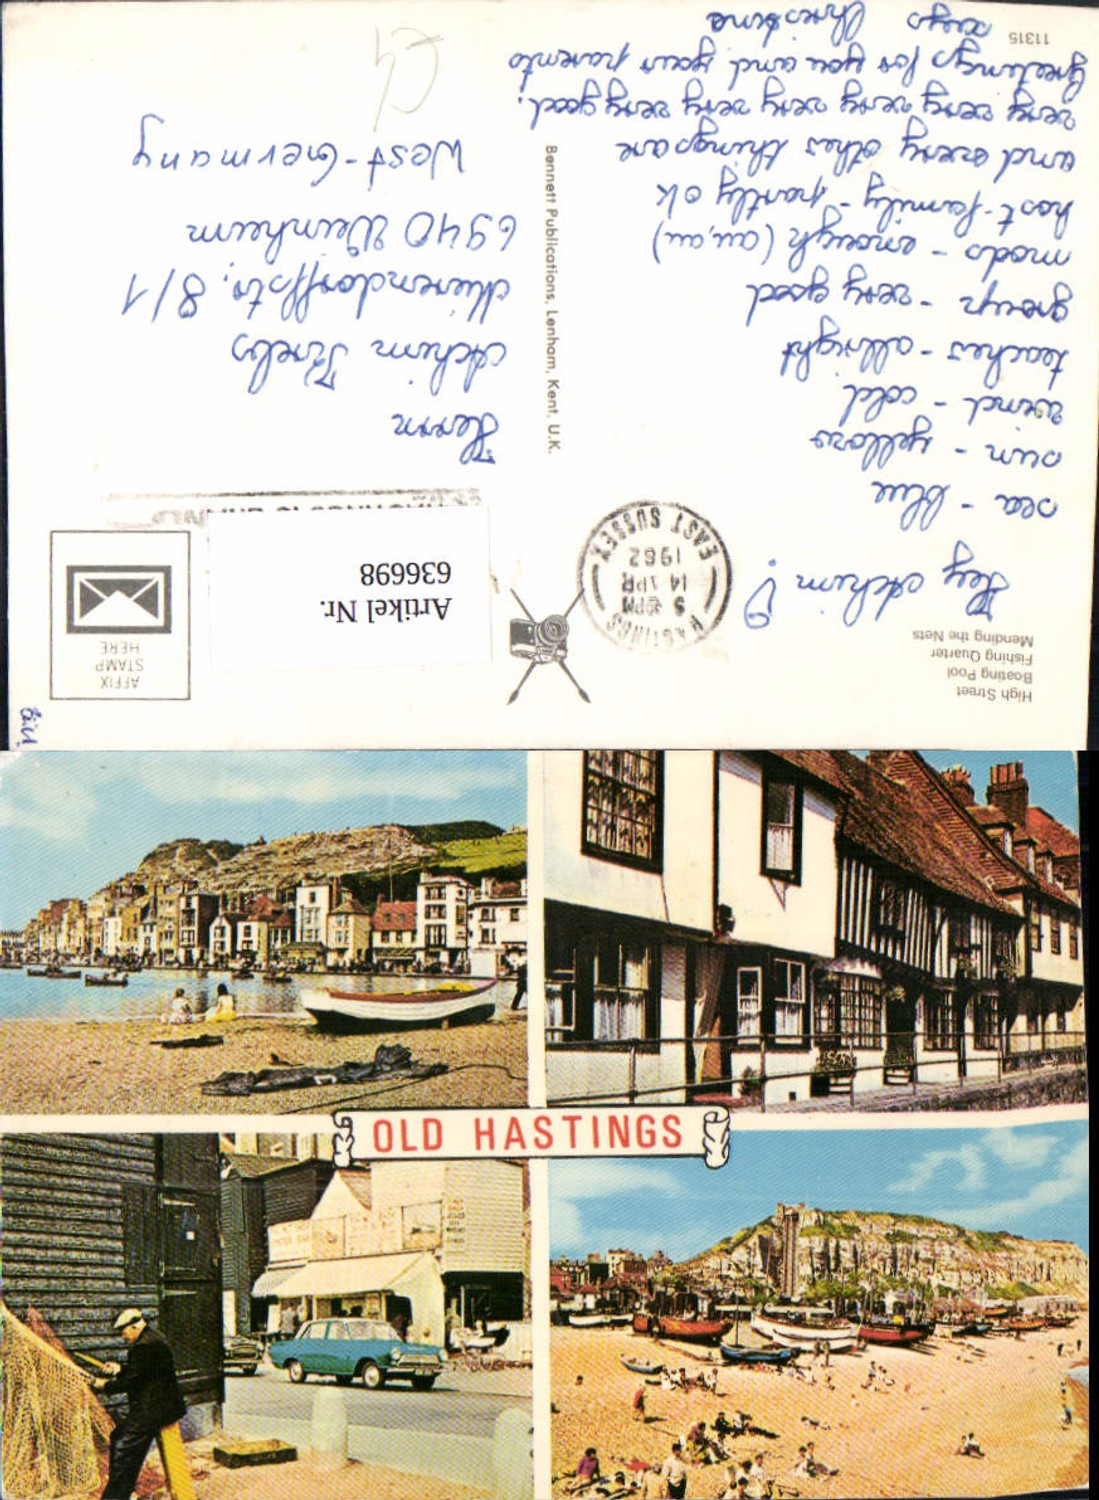 High Street
Boating Pool
Fishing Quarter
Mending the Nets
Hey Achim!
sea - blue
sun - yellow
wind - cold
teacher - allright
group - very good
meals - enough (au, au)
host-family - partly ok
and every other thing are
very very very very very very good.
Greetings for you and your parents
says Christine
11315
Bennett Publications, Lenham, Kent, U.K.
HASTINGS
5 PM
14 APR
1982
EAST SUSSEX
AFFIX
STAMP
HERE
Artikel Nr.
636698
Herrn
Achim
str. 8/1
6940 Weinheim
West-Germany
OLD HASTINGS